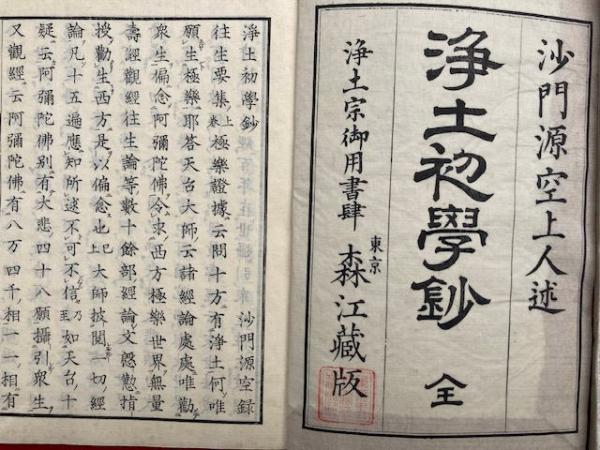 沙門源空上人述
浄土初學鈔 全
浄土宗御用書肆 東京 森江藏版
淨土初學鈔 沙門源空録
往生要集上卷極樂證據云問十方有淨土何唯
願生極樂耶答天台大師云諸經論處處唯勸
衆生偏念阿彌陀佛令求西方極樂世界無量
壽經觀經往生論等數十餘部經論文慇懃指
授勸生西方是以偏念也已上大師披閲一切經
論凡十五遍應知所述不可不信乃至如天台十
疑云阿彌陀佛別有大悲四十八願攝引衆生
又觀經云阿彌陀佛有八万四千相一一相有